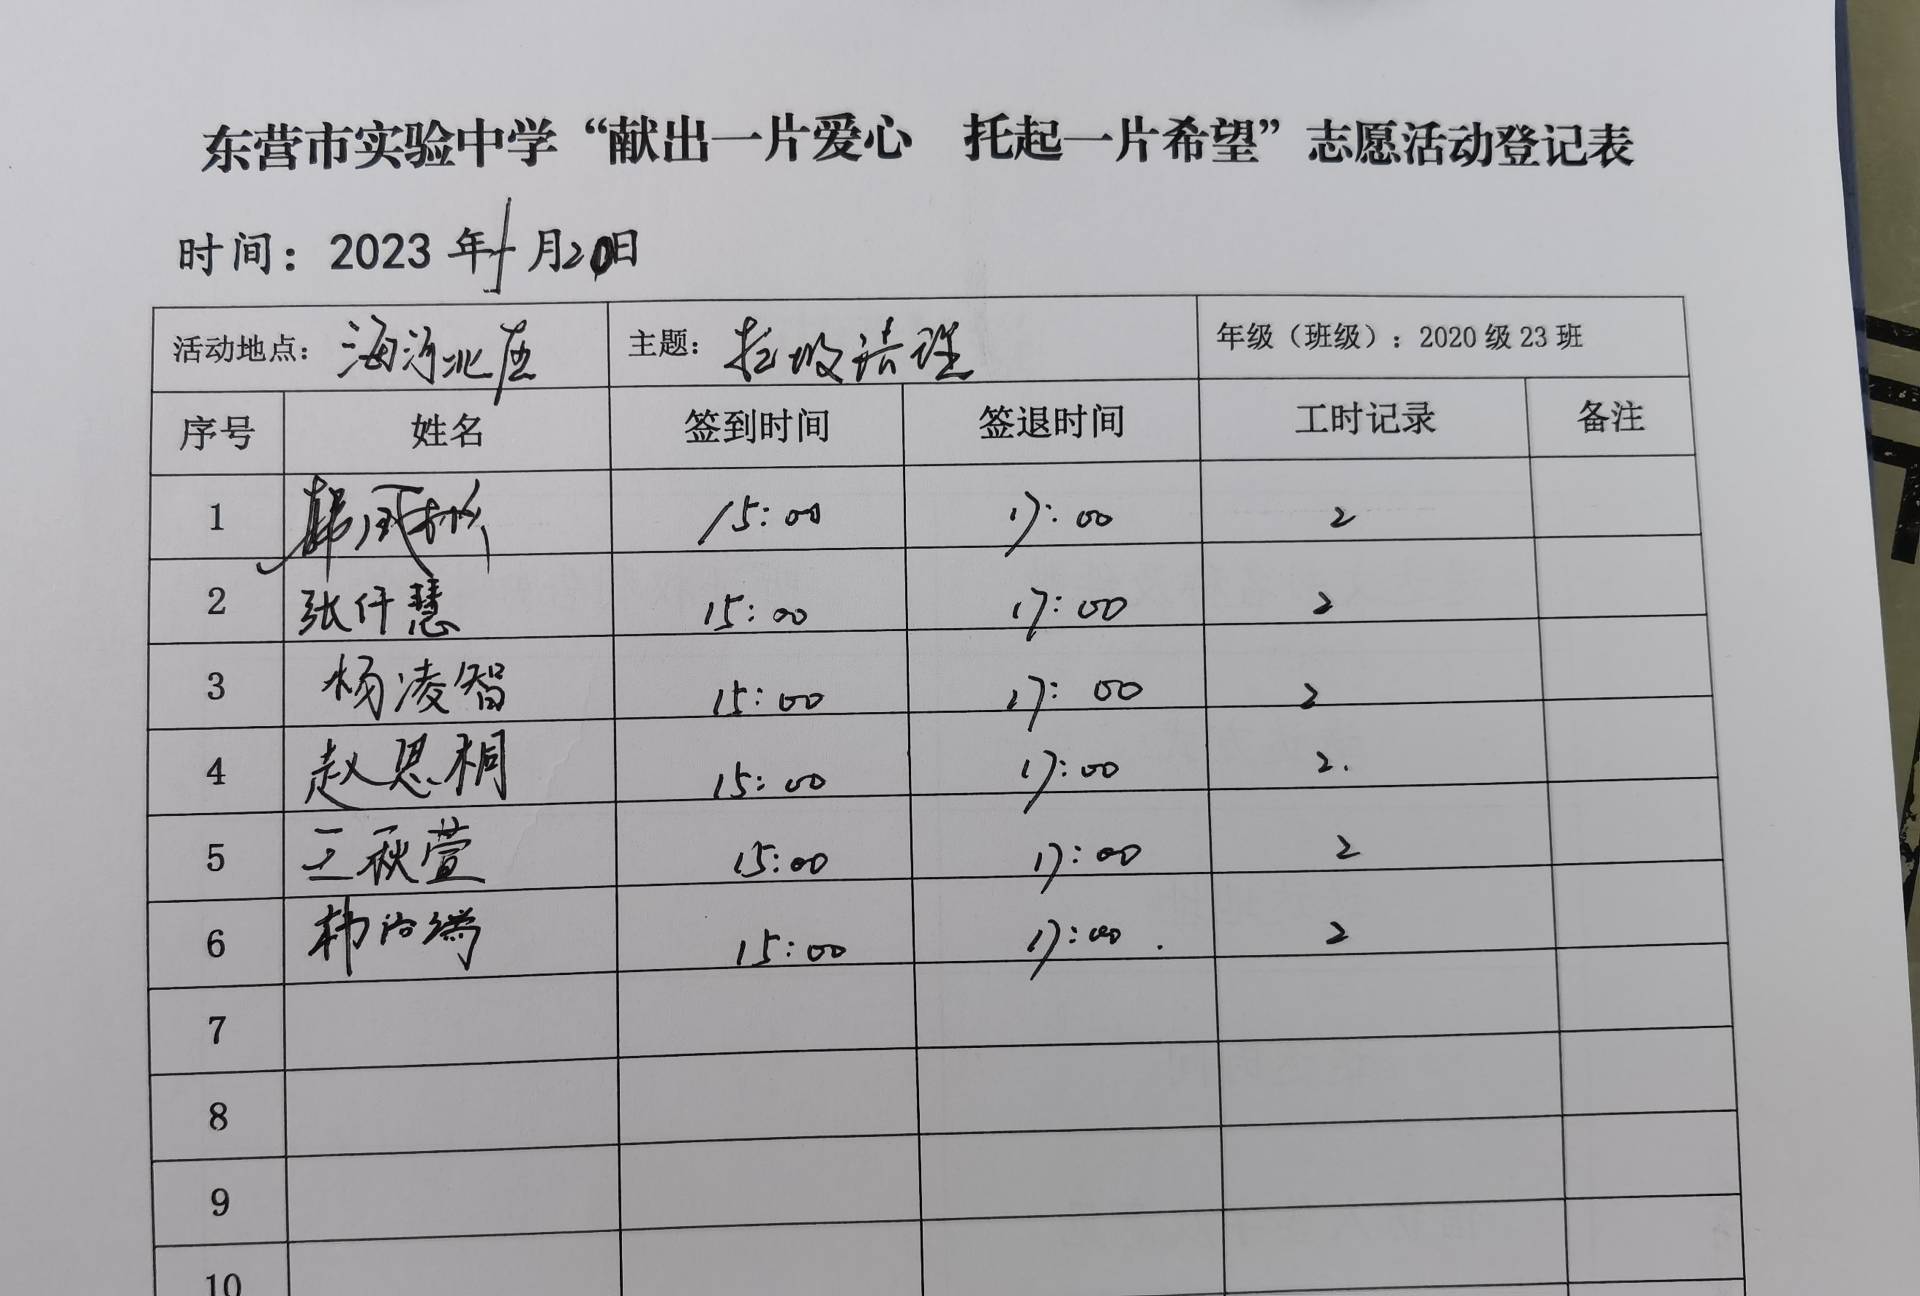 东营市实验中学“献出一片爱心 托起一片希望”志愿活动登记表
时间：2023 年 1 月 20 日
活动地点：海河北区 主题：垃圾清理 年级（班级）：2020 级 23 班
序号 姓名 签到时间 签退时间 工时记录 备注
1 韩 15:00 17:00 2
2 张仟慧 15:00 17:00 2
3 杨凌智 15:00 17:00 2
4 赵恩桐 15:00 17:00 2.
5 王秋萱 15:00 17:00 2
6 韩 15:00 17:00 2
7
8
9
10